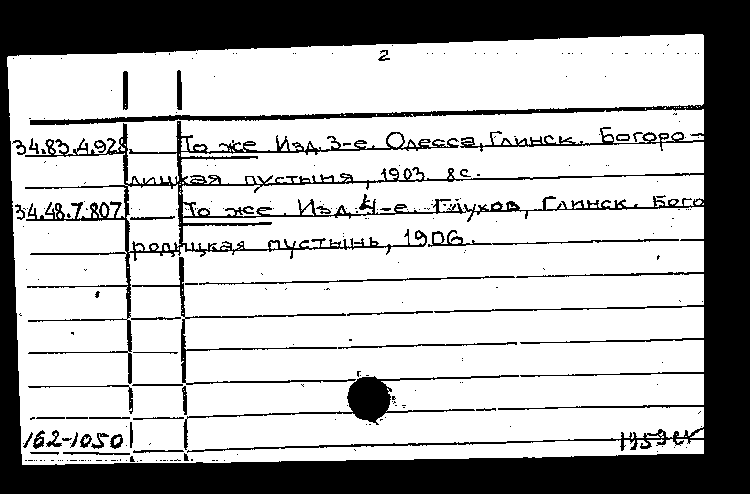 2
34.83.4.928. То же Изд. 3-е. Одесса, Глинск. Богоро-
дицкая пустыня, 1903. 8с.
34.48.7.807 То же. Изд. 4-е. Глухов, Глинск. Бого
родицкая пустынь, 1906.
162-1050